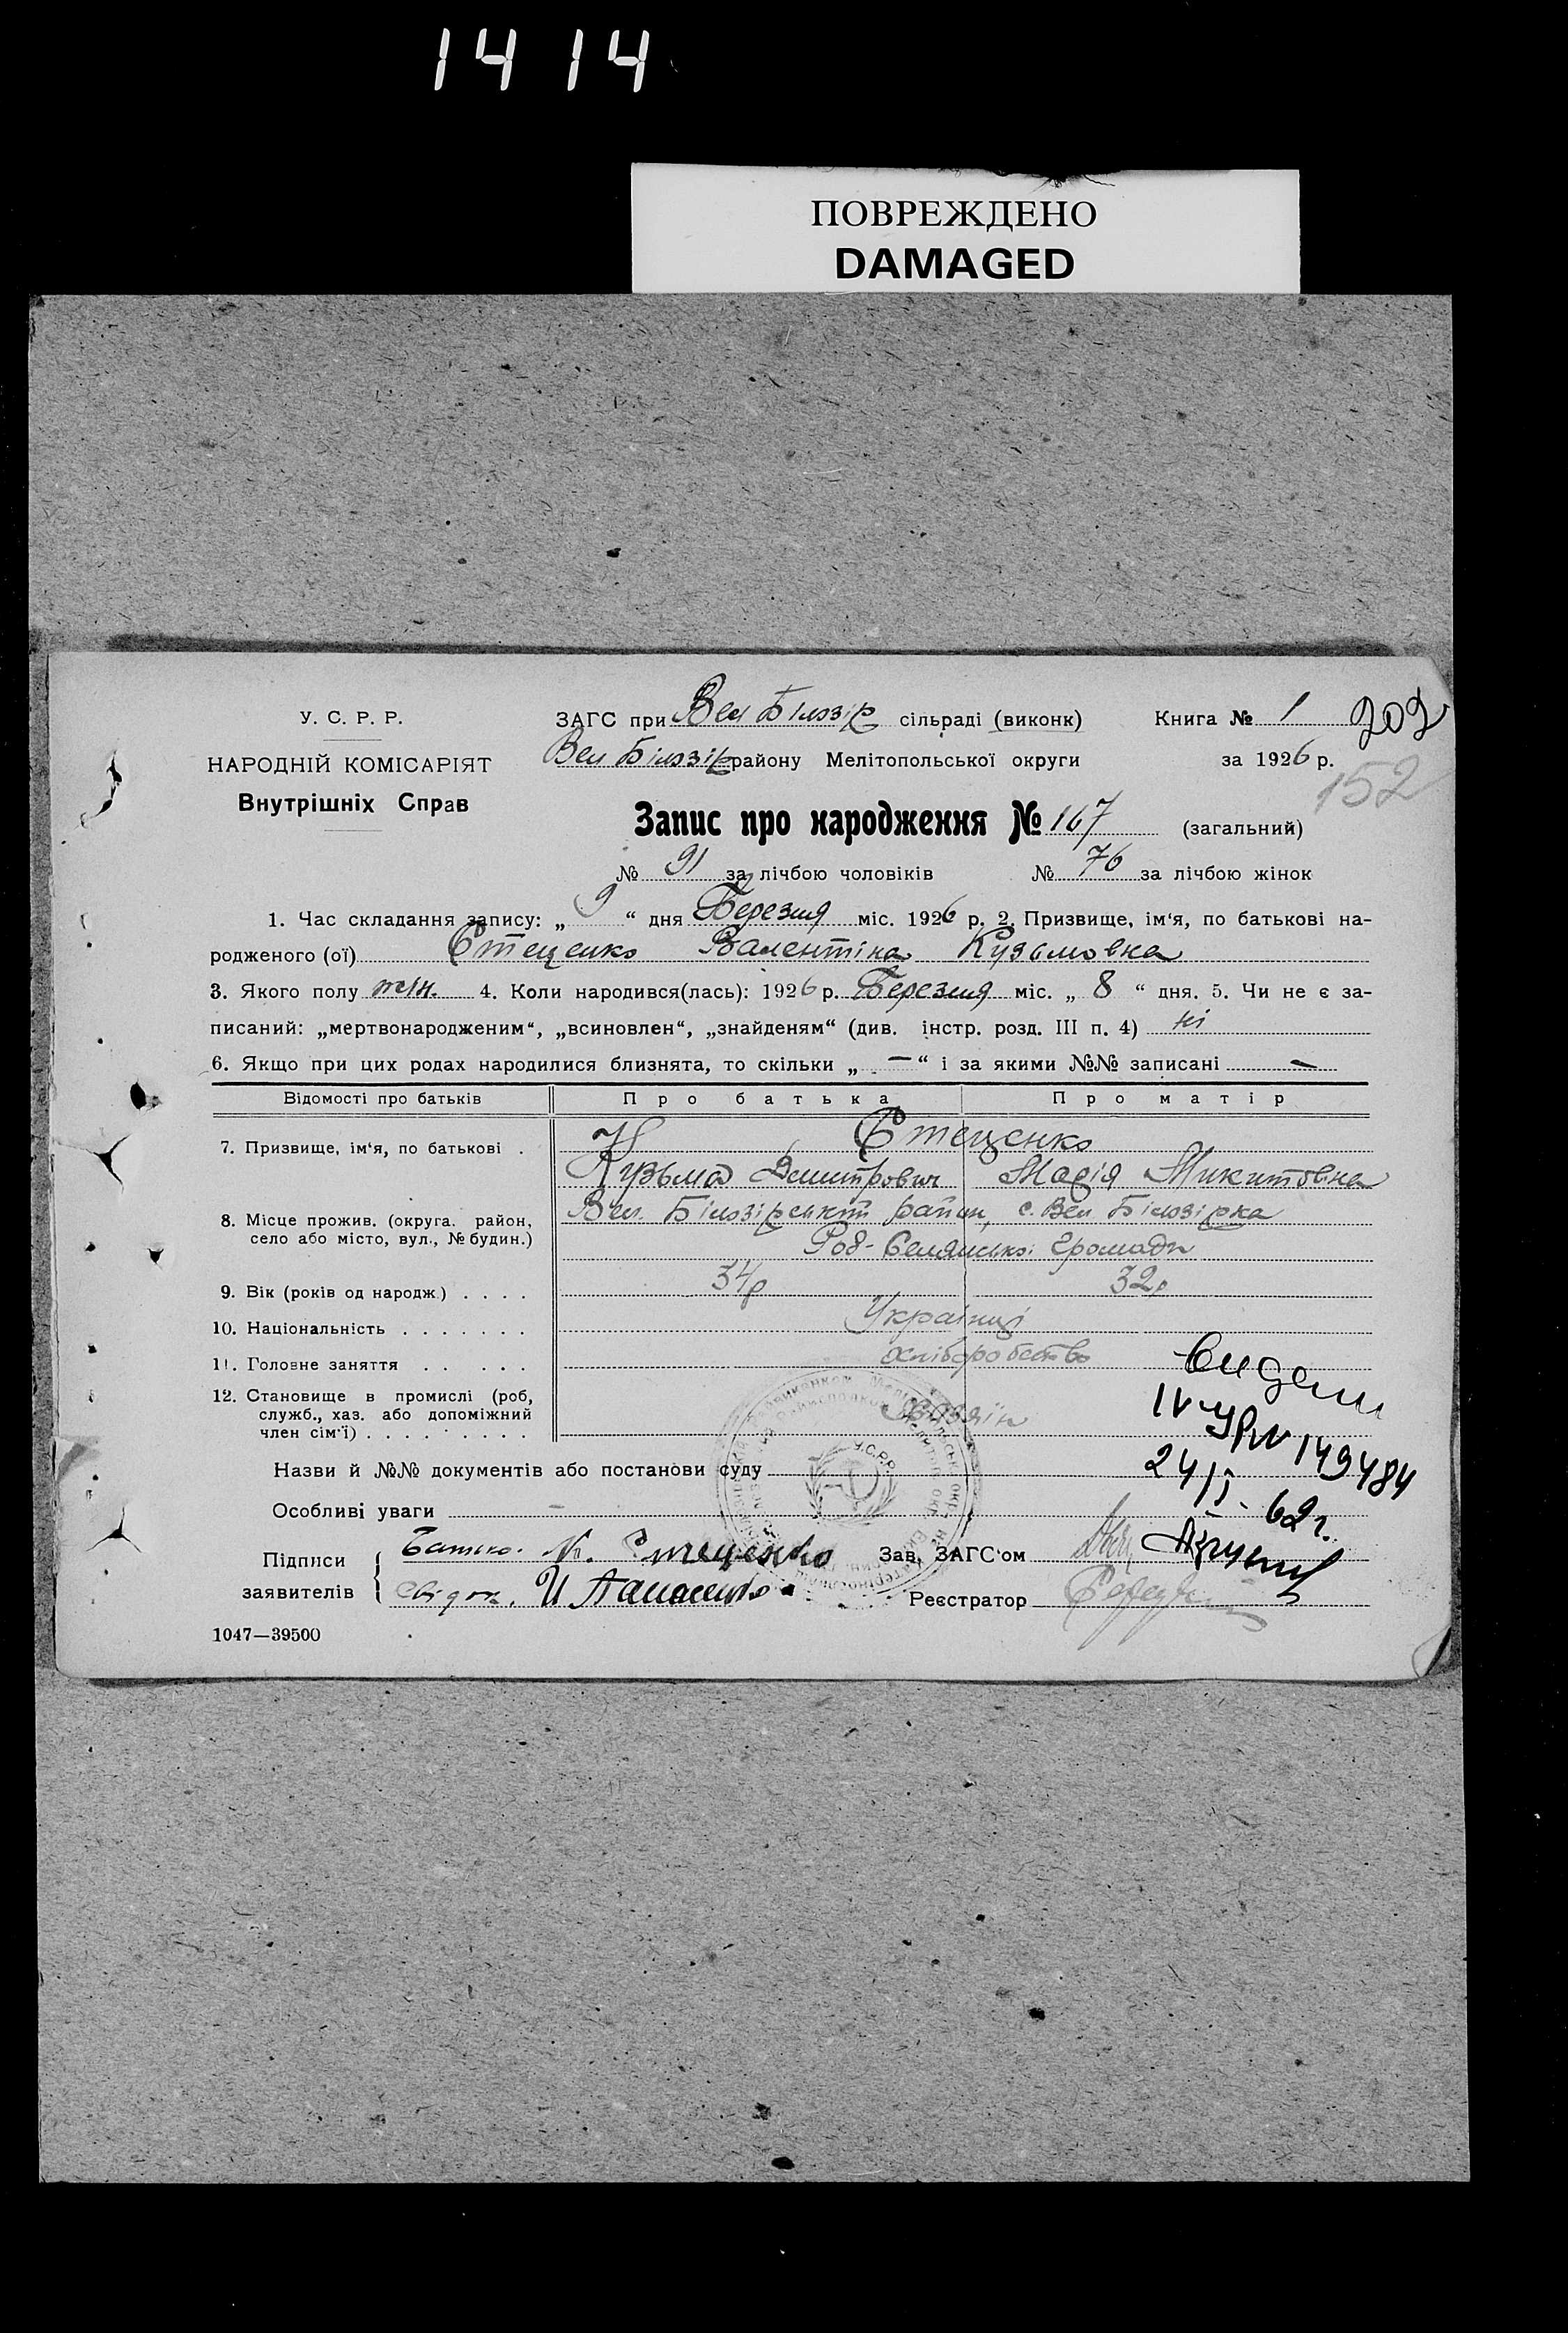 1414
ПОВРЕЖДЕНО
DAMAGED
У. С. Р. Р.
НАРОДНІЙ КОМІСАРІЯТ
Внутрішніх Справ
ЗАГС при Вел Білозір сільраді (виконк) Книга № 1 202
Вел Білозір району Мелітопольської округи за 1926 р.
152
Запис про народження № 167 (загальний)
№ 91 за лічбою чоловіків № 76 за лічбою жінок
1. Час складання запису: „ 9 “ дня Березня міс. 1926 р. 2. Призвище, ім‘я, по батькові на-
родженого (ої) Стеценко Валентіна Кузьмовна
3. Якого полу жін. 4. Коли народився(лась): 1926 р. Березня міс. „ 8 “ дня. 5. Чи не є за-
писаний: „мертвонародженим“, „всиновлен“, „знайденям“ (див. інстр. розд. III п. 4) ні
6. Якщо при цих родах народилися близнята, то скільки „ — “ і за якими №№ записані —
Відомості про батьків Про батька Про матір
7. Призвище, ім‘я, по батькові . Стеценко
Кузьма Дмитрович Марія Микитовна
8. Місце прожив. (округа. район, село або місто, вул., № будин.) Вел. Білозірський район, с. Вел Білозірка
Роб-Селянської Громади
9. Вік (років од народж.) . . . . 34р 32р
10. Національність . . . . . . . Українці
11. Головне заняття . . . . . хліборобство
12. Становище в промислі (роб, служб., хаз. або допоміжний член сім‘ї) . . . . . . . . . Хазяїн
У.С.Р.Р.
Назви й №№ документів або постанови суду
Особливі уваги —
149484
24/I - 62 г.
Підписи заявителів Батько. Стеценко
Свідок. И Панасенко
Зав. ЗАГС‘ом
Реєстратор
1047—39500